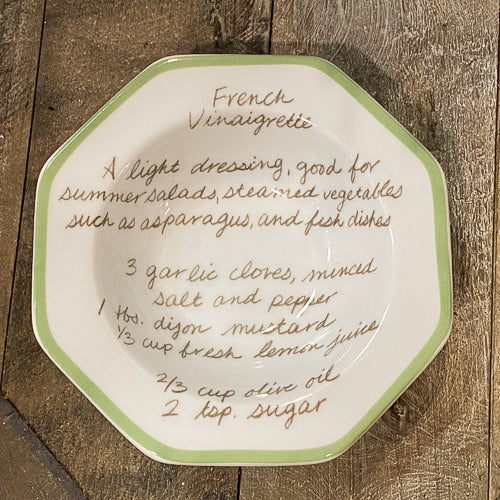 French
Vinaigrette
A light dressing, good for
summer salads, steamed vegetables
such as asparagus, and fish dishes
3 garlic cloves, minced
salt and pepper
1 tbs. dijon mustard
1/3 cup fresh lemon juice
2/3 cup olive oil
2 tsp. sugar